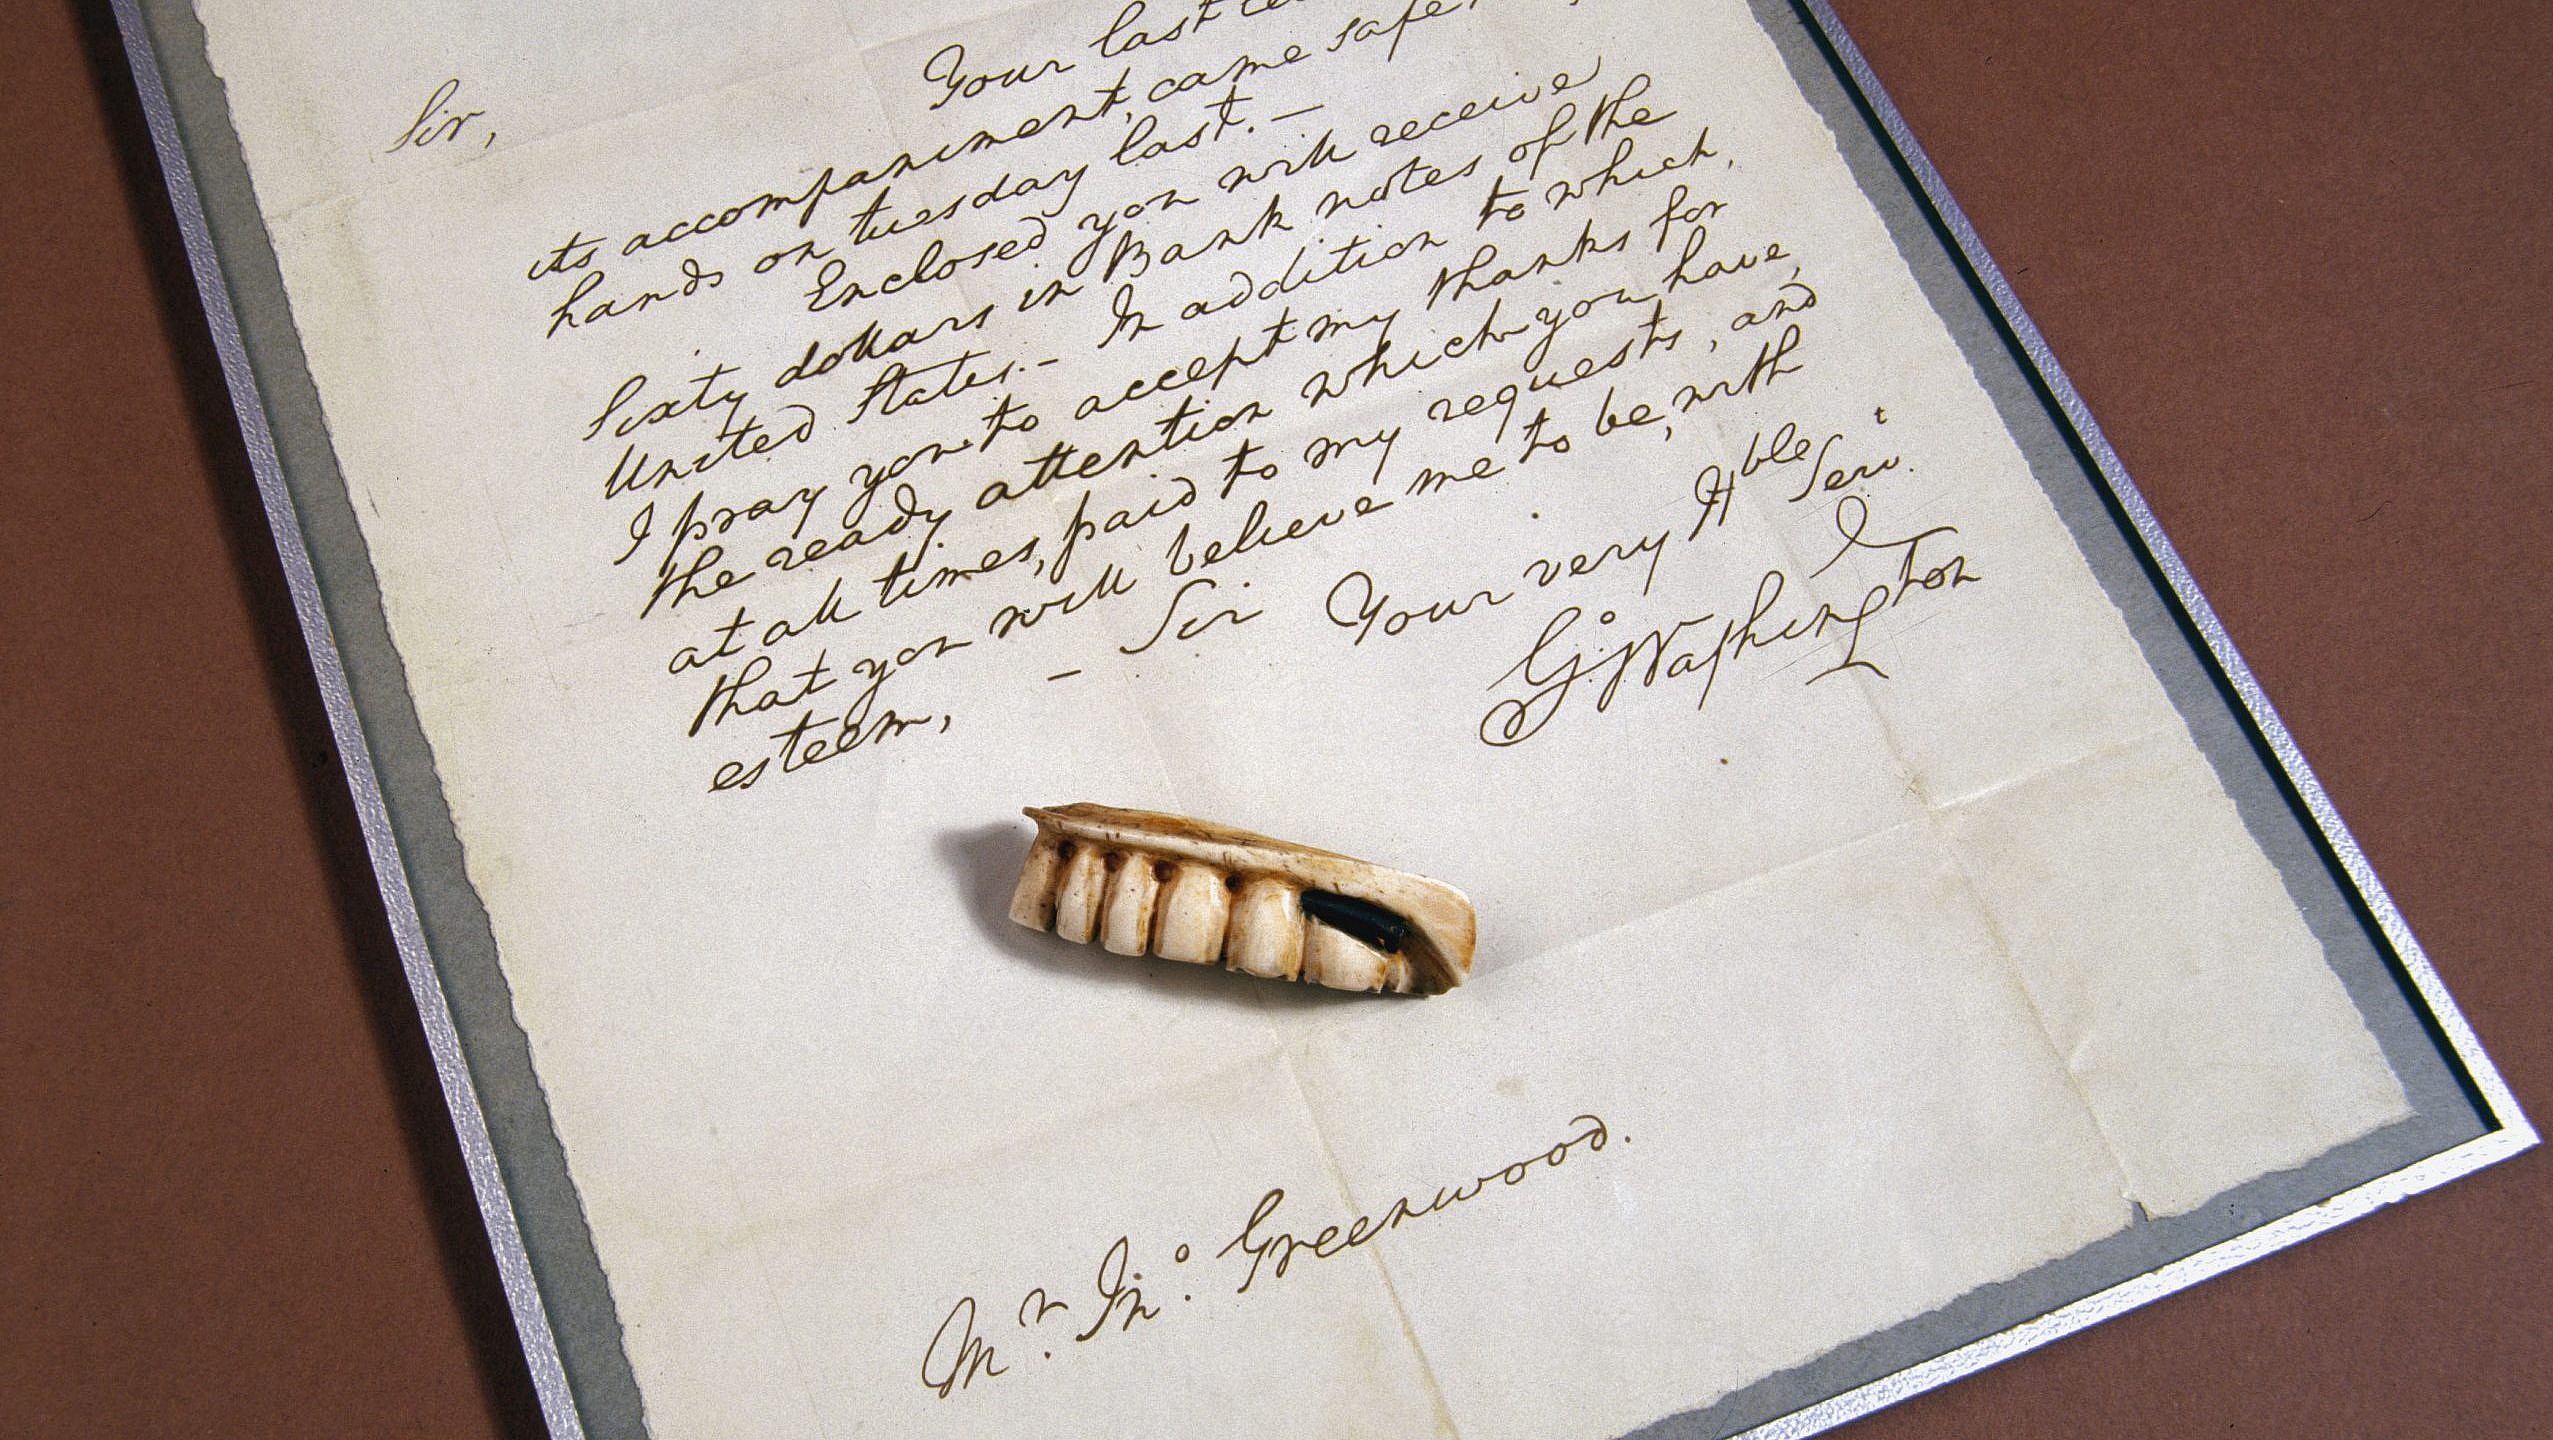 Your last
Sir,
its accompaniment, came safe
hands on tuesday last. —
Enclosed you will receive
Sixty dollars in Bank notes of the
United States. — In addition to which,
I pray you to accept my thanks for
the ready attention which you have,
at all times, paid to my requests, and
that you will believe me to be, with
esteem, — Sir Your very Hble Servt
Go: Washington
Mr. Jno. Greenwood.